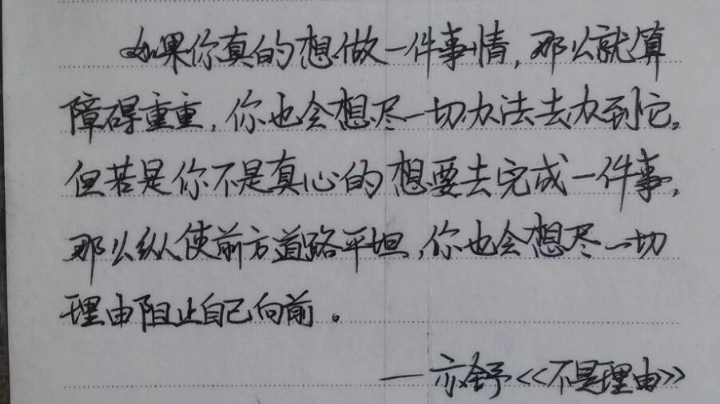 如果你真的想做一件事情,那么就算
障碍重重,你也会想尽一切办法去办到它。
但若是你不是真心的想要去完成一件事,
那么纵使前方道路平坦,你也会想尽一切
理由阻止自己向前。
——亦舒<<不是理由>>